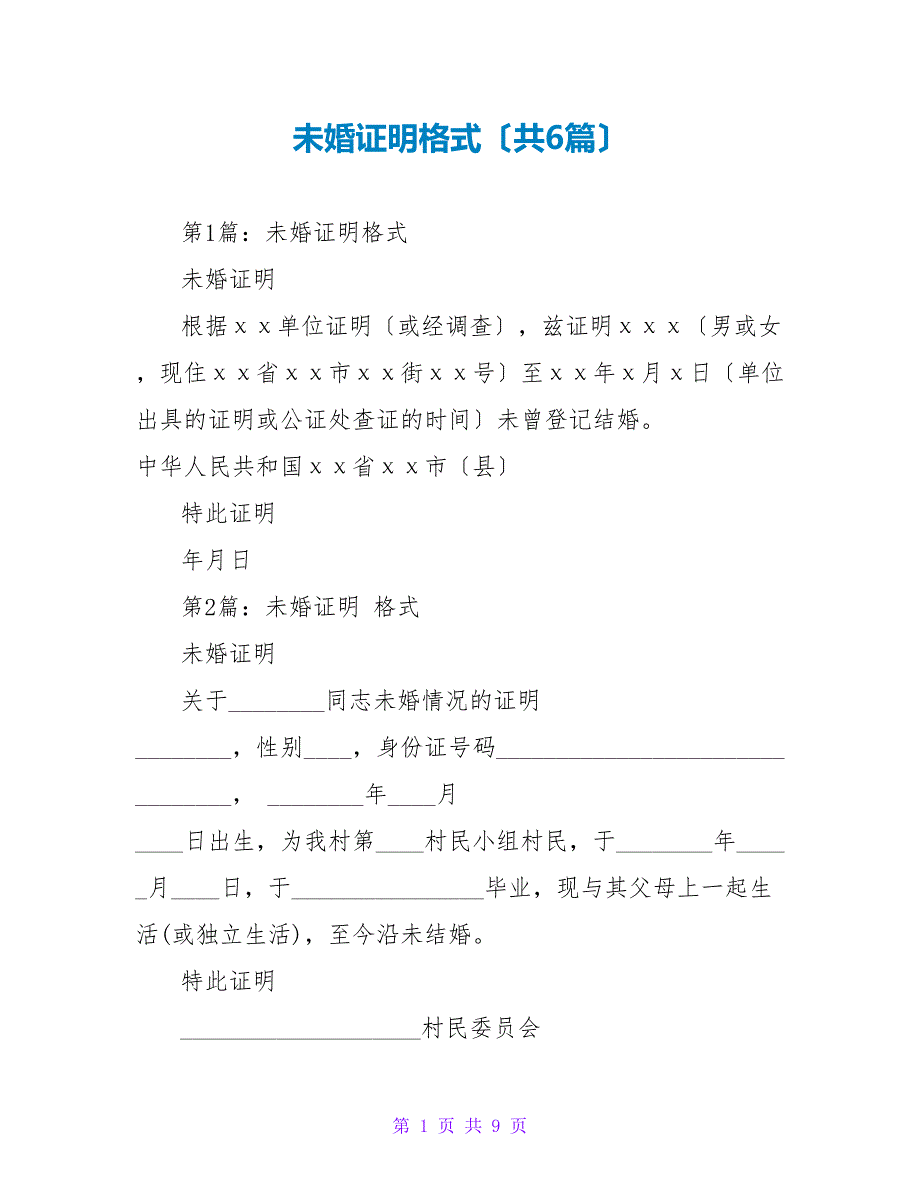 未婚证明格式〔共6篇〕
第1篇：未婚证明格式
未婚证明
根据ｘｘ单位证明〔或经调查〕，兹证明ｘｘｘ〔男或女
，现住ｘｘ省ｘｘ市ｘｘ街ｘｘ号〕至ｘｘ年ｘ月ｘ日〔单位
出具的证明或公证处查证的时间〕未曾登记结婚。
中华人民共和国ｘｘ省ｘｘ市〔县〕
特此证明
年月日
第2篇：未婚证明 格式
未婚证明
关于________同志未婚情况的证明
________，性别____，身份证号码________________________
________， ________年____月
____日出生，为我村第____村民小组村民，于________年____
_月____日，于________________毕业，现与其父母上一起生
活(或独立生活)，至今沿未结婚。
特此证明
____________________村民委员会
第 1 页 共 9 页